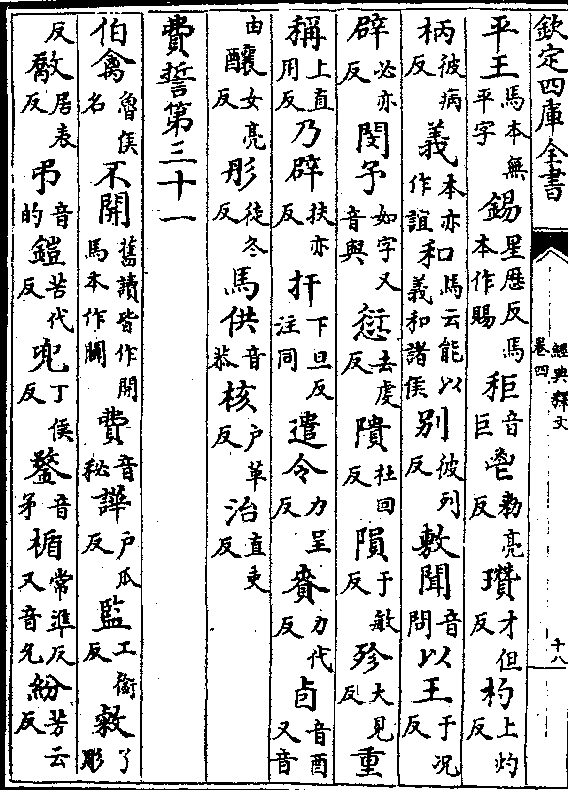 欽定四庫全書
經典釋文
卷四
十八
平王馬本無平字錫星歷反馬本作賜秬音巨鬯勑亮反瓚才但反杓上灼反
柄彼病反義本亦作誼和馬云能以義和諸侯别彼列反敷聞音問以王于况反
辟必亦反閔予如字又音與愆去虔反隤杜回反隕于敏反殄大見反重
稱上直用反乃辟扶亦反扞下旦反注同遣令力呈反賚力代反卣音酉又音
由釀女亮反彤徒冬反馬供音恭核户革反治直吏反
費誓第三十一
伯禽魯侯名不開舊讀皆作開馬本作闢費音秘譁户瓜反監工銜反敹了彫
反敿居表反弔音的鎧苦代反兜丁侯反鍪音矛楯常準反又音允紛芳云反